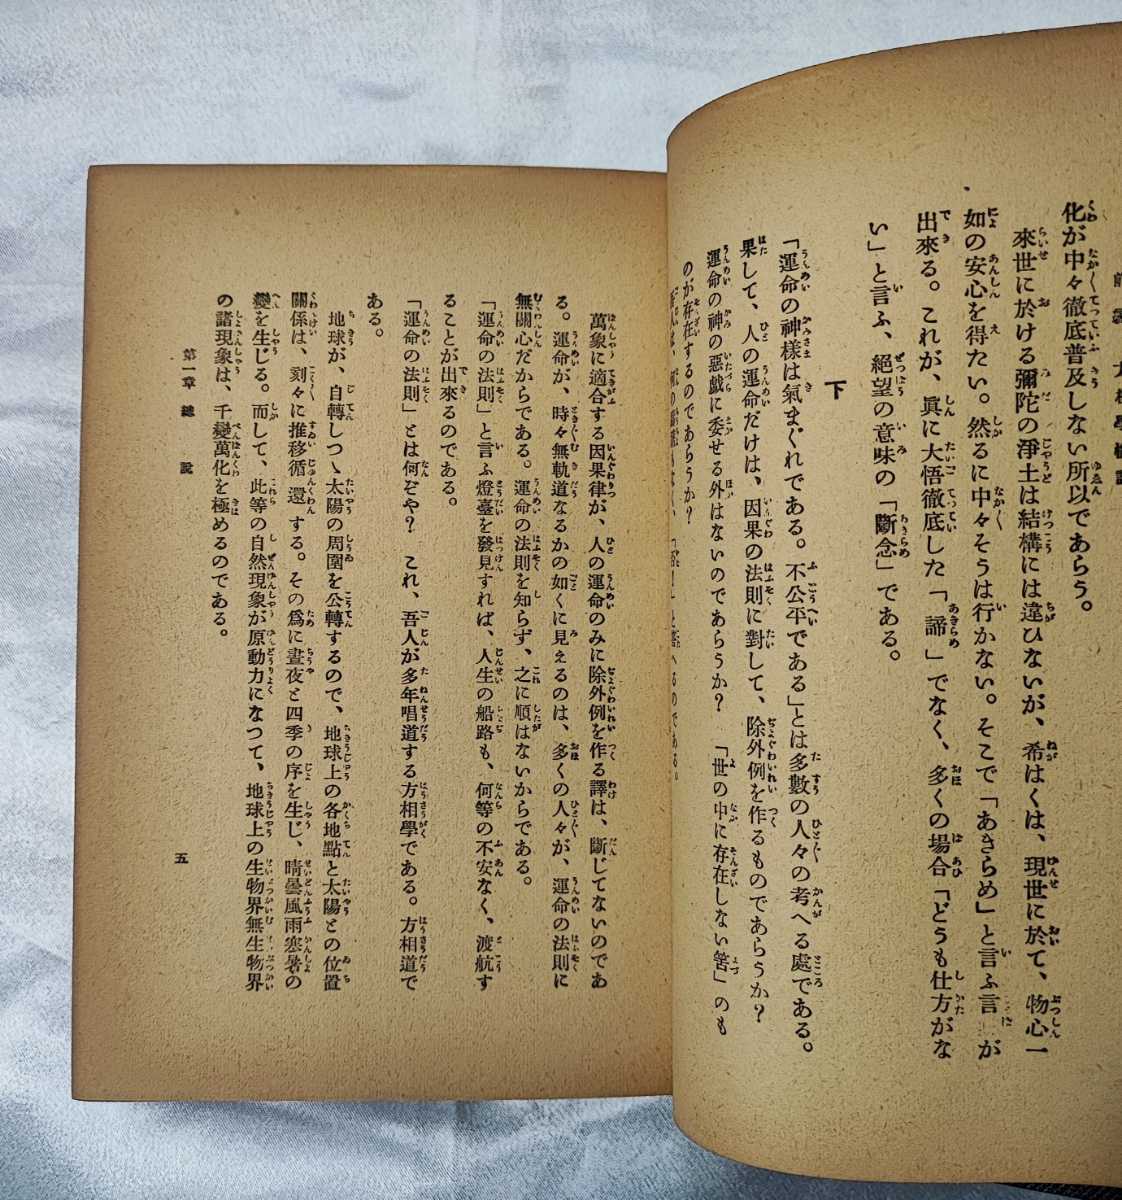 化が中々徹底普及しない所以であらう。
來世に於ける彌陀の淨土は結構には違ひないが、希はくは、現世に於て、物心一
如の安心を得たい。然るに中々そうは行かない。そこで「あきらめ」と言ふ言が
出來る。これが、眞に大悟徹底した「諦」でなく、多くの場合「どうも仕方がな
い」と言ふ、絶望の意味の「斷念」である。
下
「運命の神樣は氣まぐれである。不公平である」とは多數の人々の考へる處である。
果して、人の運命だけは、因果の法則に對して、除外例を作るものであらうか?
運命の神の惡戲に委せる外はないのであらうか? 「世の中に存在しない筈」のも
のが存在するのであらうか?
萬象に適合する因果律が、人の運命のみに除外例を作る譯は、斷じてないのであ
る。運命が、時々無軌道なるかの如くに見えるのは、多くの人々が、運命の法則に
無關心だからである。運命の法則を知らず、之に順はないからである。
「運命の法則」と言ふ燈臺を發見すれば、人生の船路も、何等の不安なく、渡航す
ることが出來るのである。
「運命の法則」とは何ぞや? これ、吾人が多年唱道する方相學である。方相道で
ある。
地球が、自轉しつゝ太陽の周圍を公轉するので、地球上の各地點と太陽との位置
關係は、刻々に推移循還する。その爲に晝夜と四季の序を生じ、晴曇風雨寒暑の
變を生じる。而して、此等の自然現象が原動力になつて、地球上の生物界無生物界
の諸現象は、千變萬化を極めるのである。
第一章 總 說
五